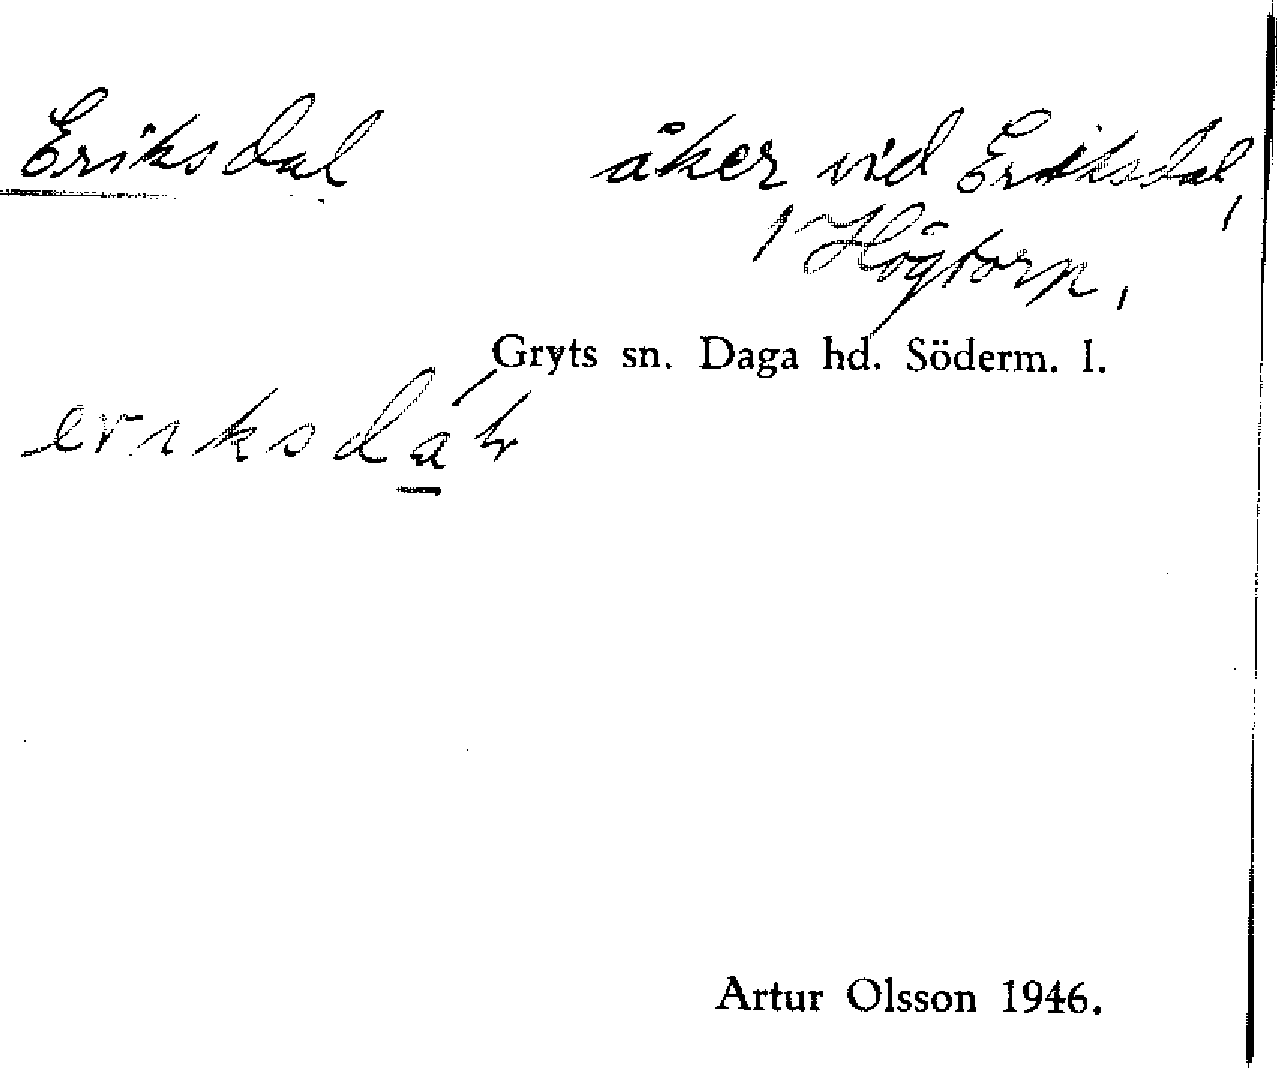 Eriksdal åker vid Eriksdal,
/ Högtorp,
Gryts sn. Daga hd. Söderm. l.
eriksdál
Artur Olsson 1946.